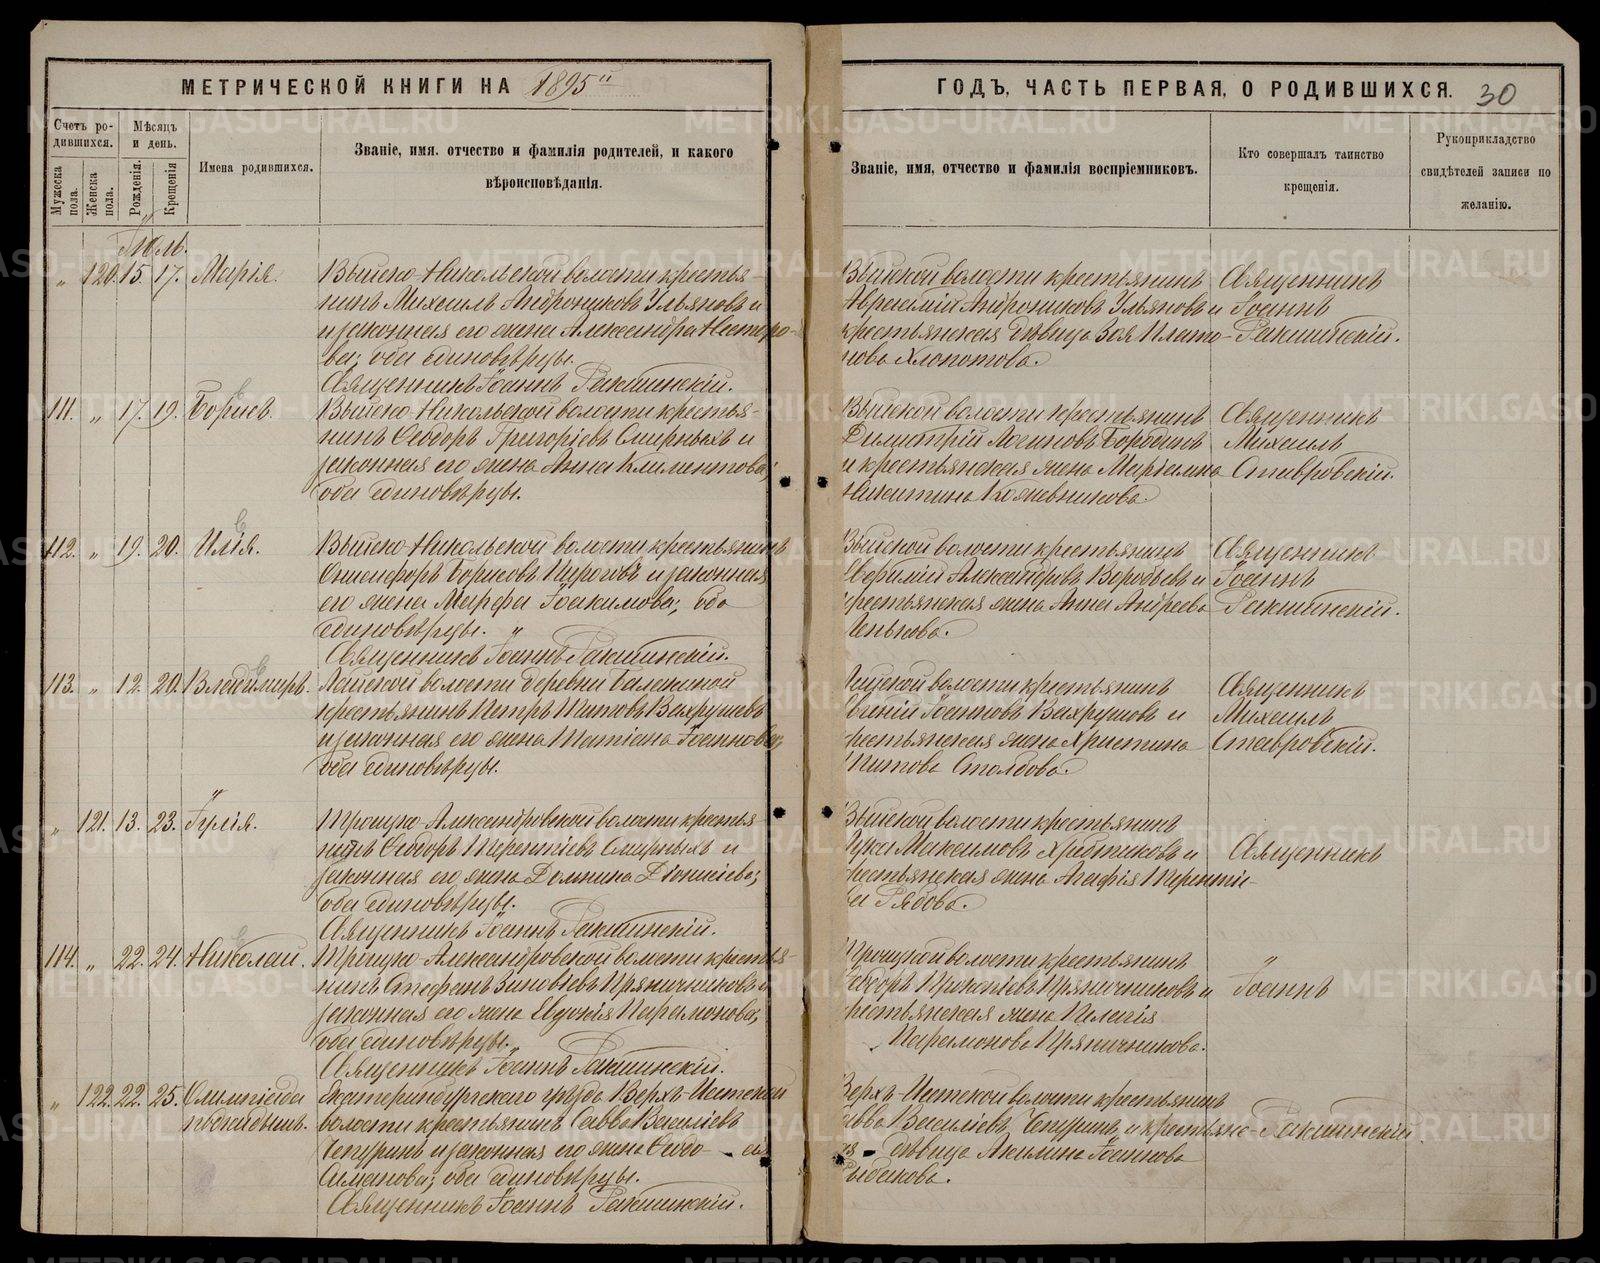 МЕТРИЧЕСКОЙ КНИГИ НА 1895й
ГОДЪ, ЧАСТЬ ПЕРВАЯ, О РОДИВШИХСЯ. 30
Счетъ ро-
дившихся.
Мужеска пола.
Женска пола.
Мѣсяцъ
и день.
Рожденія.
Крещенія
Имена родившихся.
Званіе, имя. отчество и фамилія родителей, и какого
вѣроисповѣданія.
Званіе, имя, отчество и фамилія воспріемниковъ.
Кто совершалъ таинство
крещенія.
Рукоприкладство
свидѣтелей записи по
желанію.
Іюль.
„ 120. 15. 17. Марія.
Выйско-Никольской волости крестья-
нинъ Михаилъ Андрониковъ Ульяновъ и
законная его жена Александра Несторо-
ва; оба единовѣрцы.
Священникъ Іоаннъ Ракшинскій.
Выйской волости крестьянинъ
Авраамій Андрониковъ Ульяновъ и
крестьянская дѣвица Зоя Плато-
нова Хлопотова.
Священникъ
Іоаннъ
Ракшинскій.
111. „ 17. 19. Борисъ.
Выйско-Никольской волости крестья-
нинъ Ѳеодоръ Григоріевъ Смирныхъ и
законная его жена Анна Климентова;
оба единовѣрцы.
Выйской волости крестьянинъ
Димитрій Бородинъ
и крестьянская жена
Никитина Кожевникова.
Священникъ
Михаилъ
Ставровскій.
112. „ 19. 20. Илія.
Выйско-Никольской волости крестьянинъ
Онисифоръ Борисовъ Пироговъ и законная
его жена Марѳа Іоакимова; оба
единовѣрцы.
Священникъ Іоаннъ Ракшинскій.
Выйской волости крестьянинъ
Александровъ Воробьевъ и
крестьянская жена Анна Андреева
Пенькова.
Священникъ
Іоаннъ
Ракшинскій.
113. „ 12. 20. Владиміръ.
Лайской волости деревни Балакиной
крестьянинъ Петръ Титовъ Вахрушевъ
и законная его жена Татіана Іоаннова;
оба единовѣрцы.
Лайской волости крестьянинъ
Евгеній Іоанновъ Вахрушовъ и
крестьянская жена Христина
Титова Столбова.
Священникъ
Михаилъ
Ставровскій.
„ 121. 13. 23. Іулія.
Троицко-Александровской волости крестья
нинъ Ѳеодоръ Терентіевъ Смирныхъ и
законная его жена Домнина Діонисіева;
оба единовѣрцы.
Священникъ Іоаннъ Ракшинскій.
Выйской волости крестьянинъ
Лука Максимовъ Храбтиковъ и
крестьянская жена Агафія Терентіе-
ва Рябова.
Священникъ
114. „ 22. 24. Николай.
Троицко-Александровской волости крестья-
нинъ Стефанъ Зиновьевъ Пряничниковъ и
законная его жена Евдокія Парамонова;
оба единовѣрцы.
Священникъ Іоаннъ Ракшинскій.
Троицкой волости крестьянинъ
Ѳеодоръ Прокопіевъ Пряничниковъ и
крестьянская жена Пелагія
Парамонова Пряничникова.
Іоаннъ
„ 122. 22. 25. Олимпіада
подкидышъ.
Екатеринбургскаго уѣзда Верхъ-Исетской
волости крестьянинъ Савва Василіевъ
Чепуринъ и законная его жена
; оба единовѣрцы.
Священникъ Іоаннъ Ракшинскій.
Верхъ-Исетской волости крестьянинъ
Савва Василіевъ Чепуринъ, и крестьянс-
кая дѣвица Акилина Іоаннова
Рыбакова.
Ракшинскій
METRIKI.GASO-URAL.RU